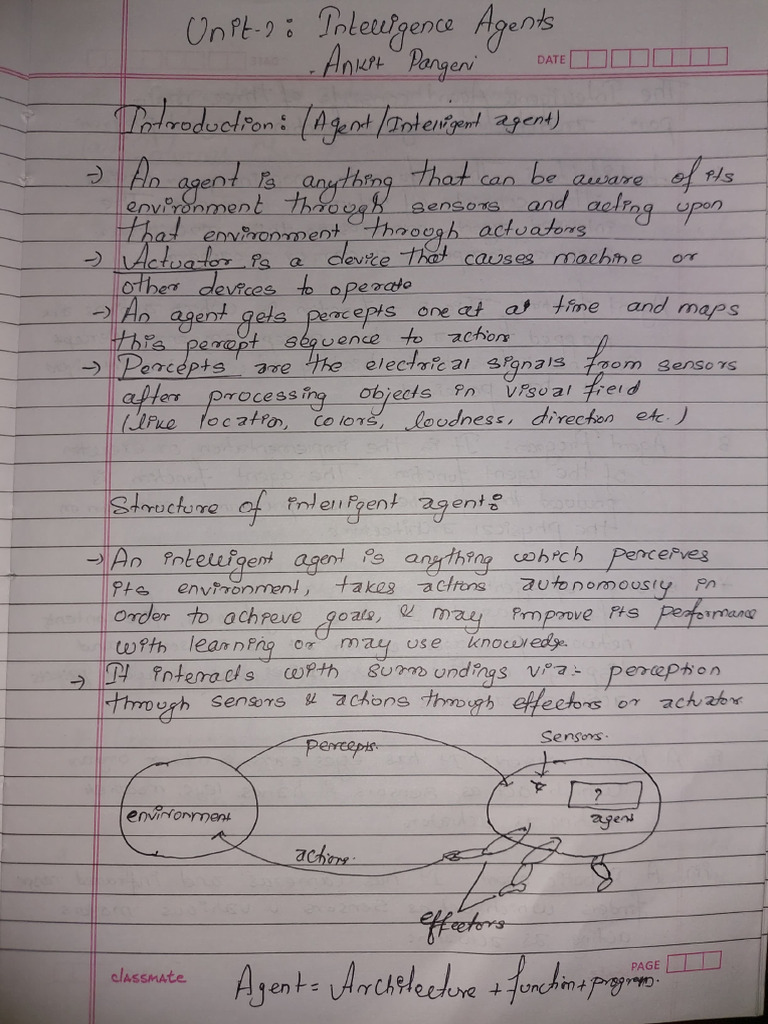 Unit-2: Intelligence Agents
- Ankit Pangeni
DATE
Introduction: (Agent/Intelligent agent)
→ An agent is anything that can be aware of its
environment through sensors and acting upon
that environment through actuators
→ Actuator is a device that causes machine or
other devices to operate
→ An agent gets percepts one at a time and maps
this percept sequence to action
→ Percepts are the electrical signals from sensors
after processing objects in visual field
(like location, colors, loudness, direction etc.)
Structure of intelligent agent:
→ An intelligent agent is anything which perceives
its environment, takes actions autonomously in
order to achieve goals, & may improve its performance
with learning or may use knowledge.
→ It interacts with surroundings via:- perception
through sensors & actions through effectors or actuator
percepts.
Sensors.
?
environment
agent
actions.
effectors
classmate
PAGE
Agent = Architecture + function + program.